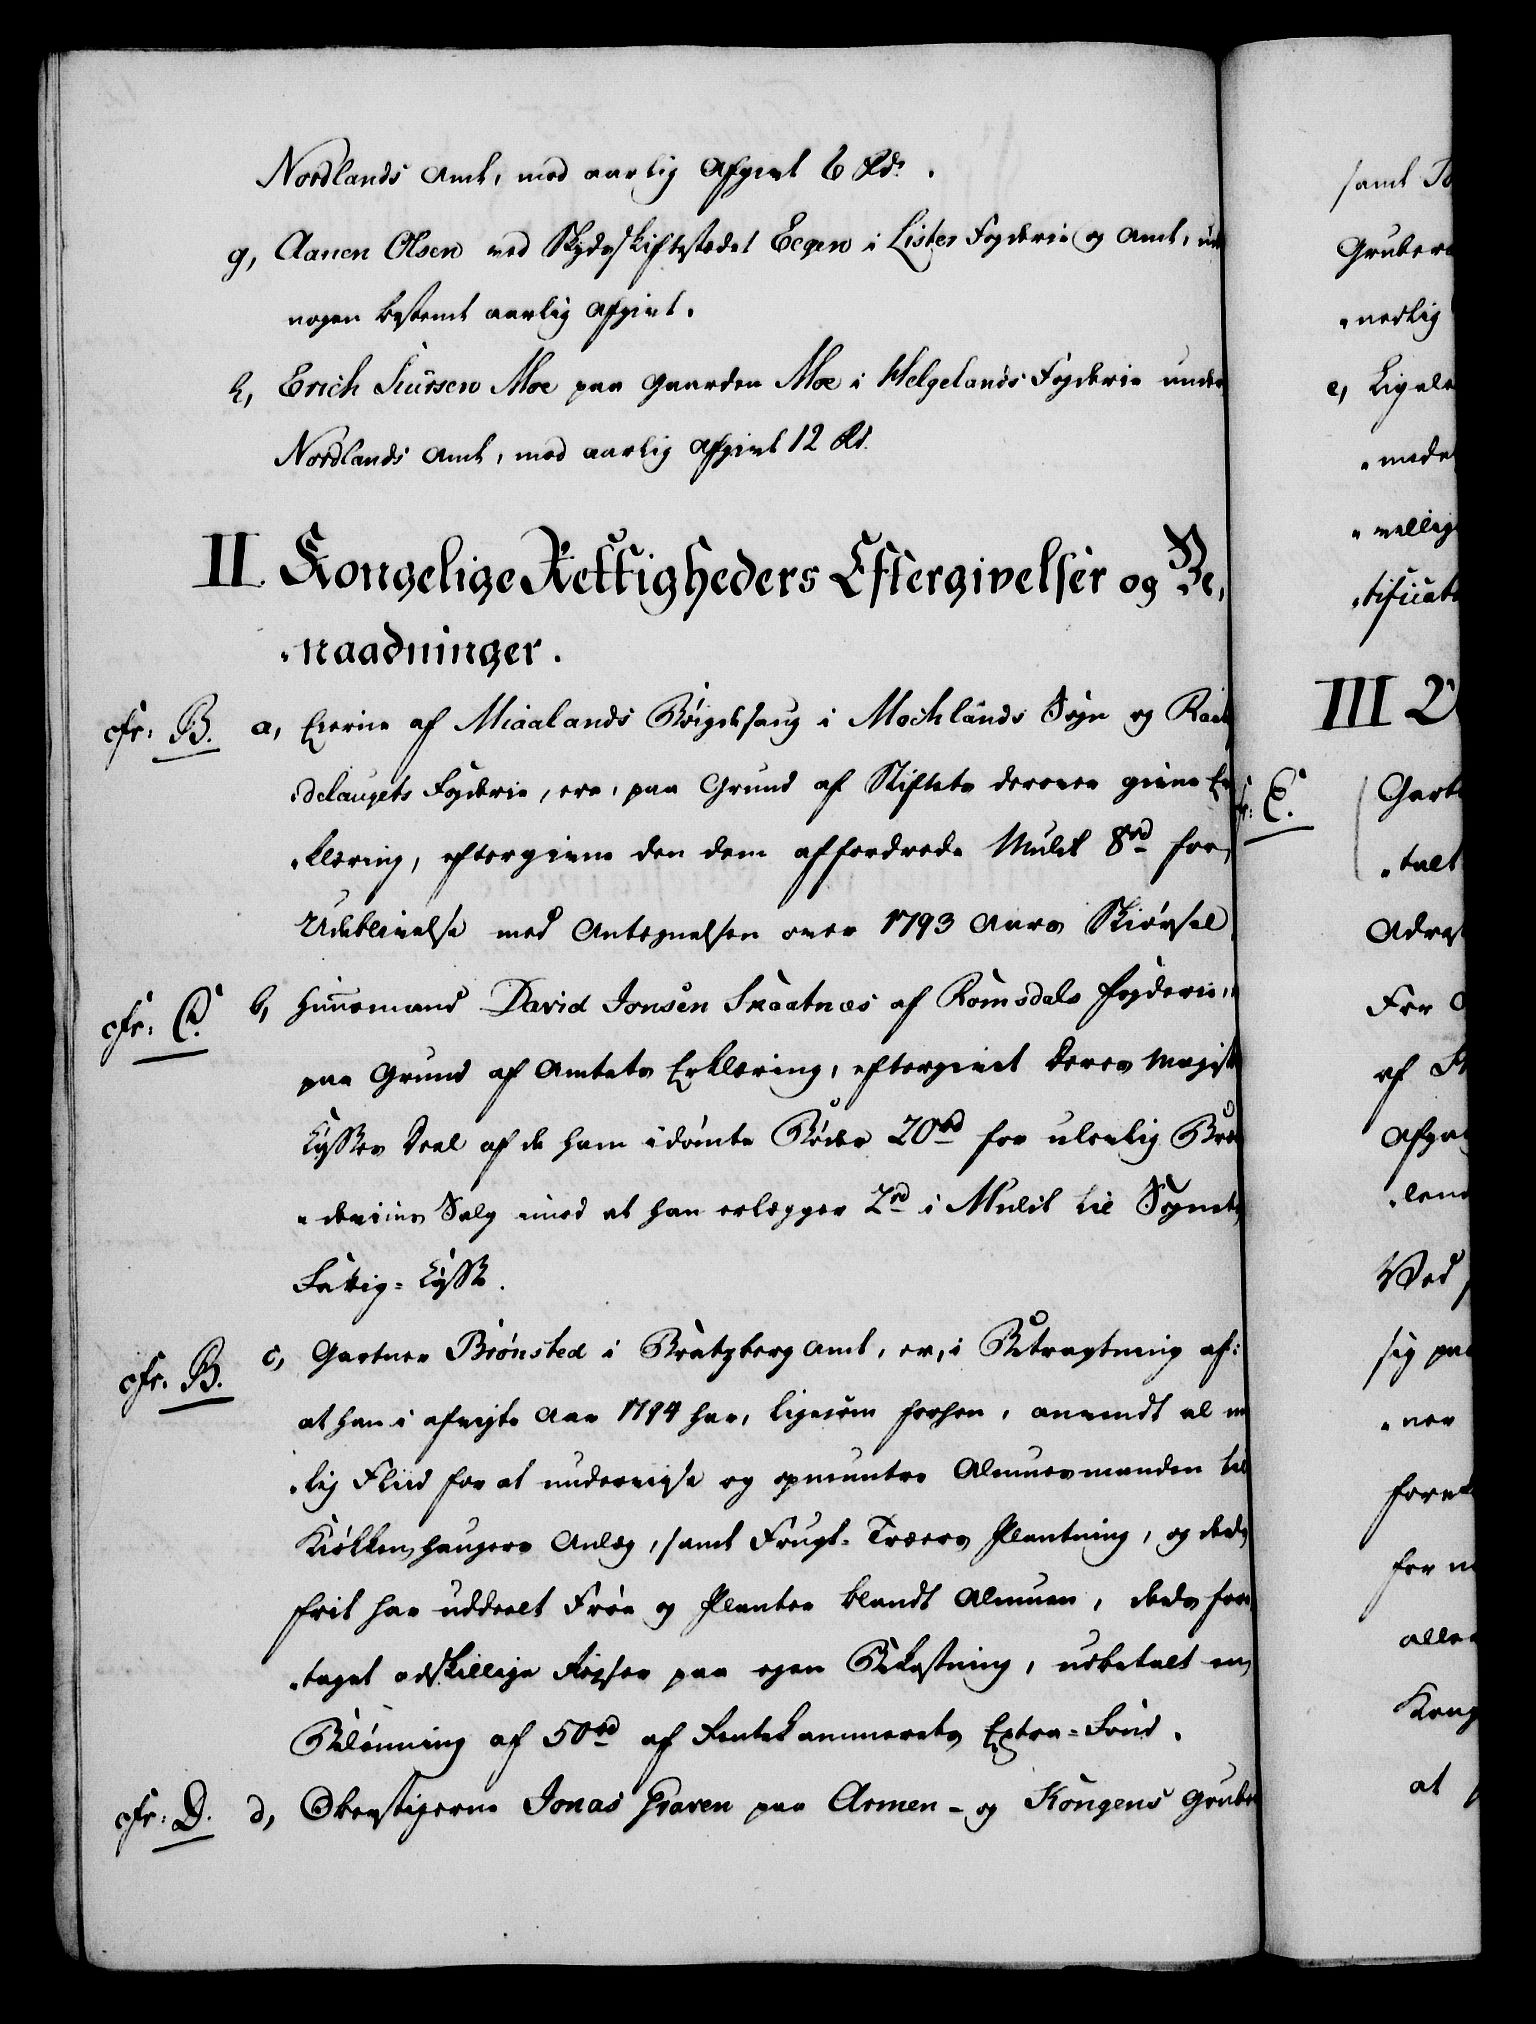 Nordlands Amt, med aarlig Afgivt 6 Rd.
g, Aanen Olsen ved Skydsskiftestedet Eegen i Lister Fogderie og Amt, uden
nogen bestemt aarlig Afgivt.
h, Erich Siursen Moe paa Gaarden Moe i Helgelands Fogderie under
Nordlands Amt, med aarlig Afgivt 12 Rd.
II. Kongelige Rettigheders Eftergivelser og Be-
-naadninger.
cfr: B. a, Eierne af Miaalands Bøigdesaug i Mochlands Sogn og Raab-
-delaugets Fogderie, ere, paa Grund af Stiftets derover givne Er-
-klæring, eftergivne den dem affordrede Mulct 8rd for
Udeblivelse med Antegnelsen over 1793 Aars Skiørsel.
cfr: C. b, Huusmand David Jonsen Skaatnæs af Romsdals Fogderie,
paa Grund af Amtets Erklæring, eftergivet Deres Majests
Kasses Deel af de ham idømte Bøder 20rd for ulovlig Bræn-
-deviins Salg imod at han erlægger 2rd i Mulct til Sognets
Fattig-Kasse.
cfr. B. c, Gartner Brønsted i Bratzberg Amt, er, i Betragtning af:
at han i afvigte Aar 1794 har, ligesom forhen, anvendt al mu-
-lig Fliid for at underviise og opmuntre Almuesmanden til
Kiøkkenhaugers Anlæg, samt Frugt-Træers Plantning, og deels
frit har uddeelt Frøe og Planter blandt Almuen, deels fore-
-taget adskillige Reyser paa egen Bekostning, udbetalt en
Belønning af 50rd af Rentekammerets Extra-Fond.
cfr: D. d, Oberstigerne Jonas Graven paa Armen- og Kongens Grube
samt
Gruber
-nedlig
e, Ligele
-mede
-vellig
-tificat
III
fr: E.
-talt
Adres
For
af
Afga
-lene
Ved
sig paa
-ner
for
alle
Kong
at